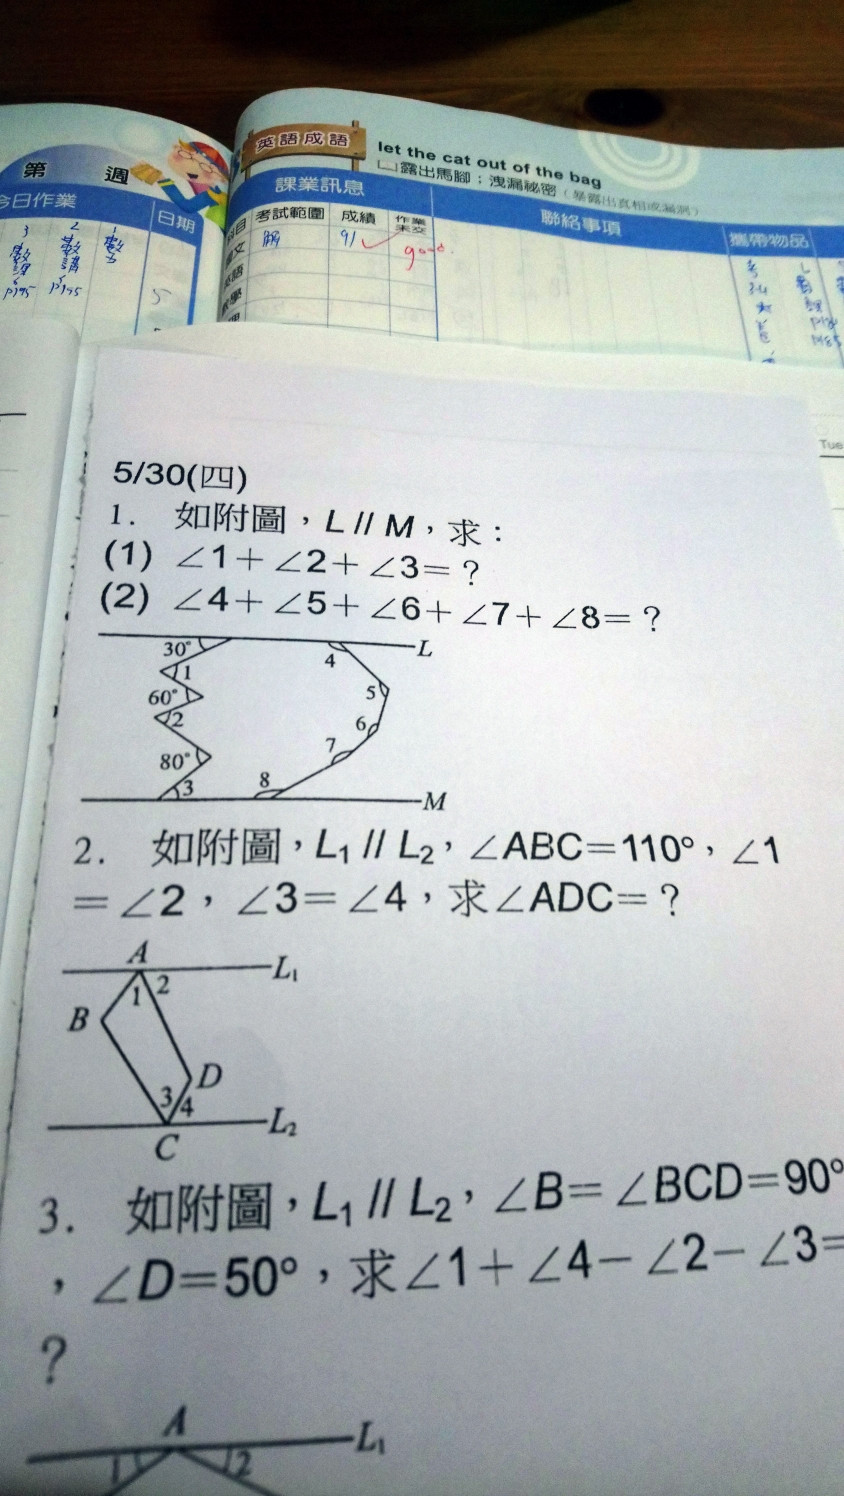 英語成語
let the cat out of the bag
露出馬腳；洩漏祕密（暴露出真相或漏洞）
第 週
今日作業
日期
課業訊息
考試範圍
成績
作業未交
聯絡事項
攜帶物品
91
good
P195
P195
5
Tue
5/30(四)
1. 如附圖，L // M，求：
(1) ∠1＋∠2＋∠3＝？
(2) ∠4＋∠5＋∠6＋∠7＋∠8＝？
L
30°
4
1
60°
5
2
6
7
80°
8
3
M
2. 如附圖，L₁ // L₂，∠ABC＝110°，∠1
＝∠2，∠3＝∠4，求∠ADC＝？
A
L₁
1 2
B
D
3 4
L₂
C
3. 如附圖，L₁ // L₂，∠B＝∠BCD＝90°
，∠D＝50°，求∠1＋∠4－∠2－∠3＝
？
A
L₁
1 2